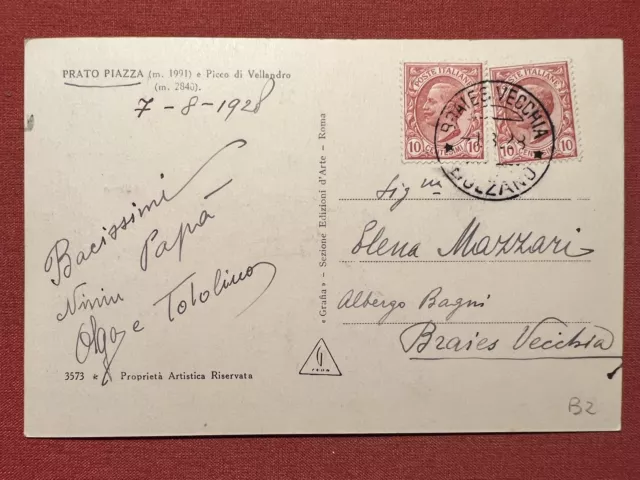 PRATO PIAZZA (m. 1991) e Picco di Vallandro
(m. 2840).
7-8-1928
Bacissimi
Papà
Ninin
Olga e Totolino
3573 * Proprietà Artistica Riservata
« Grafia » - Sezione Edizioni d'Arte - Roma
POSTE ITALIANE
10 CENTESIMI 10
POSTE ITALIANE
10 CENTESIMI 10
BRAIES VECCHIA
* BOLZANO *
Sig na
Elena Mazzari
Albergo Bagni
Braies Vecchia
B2